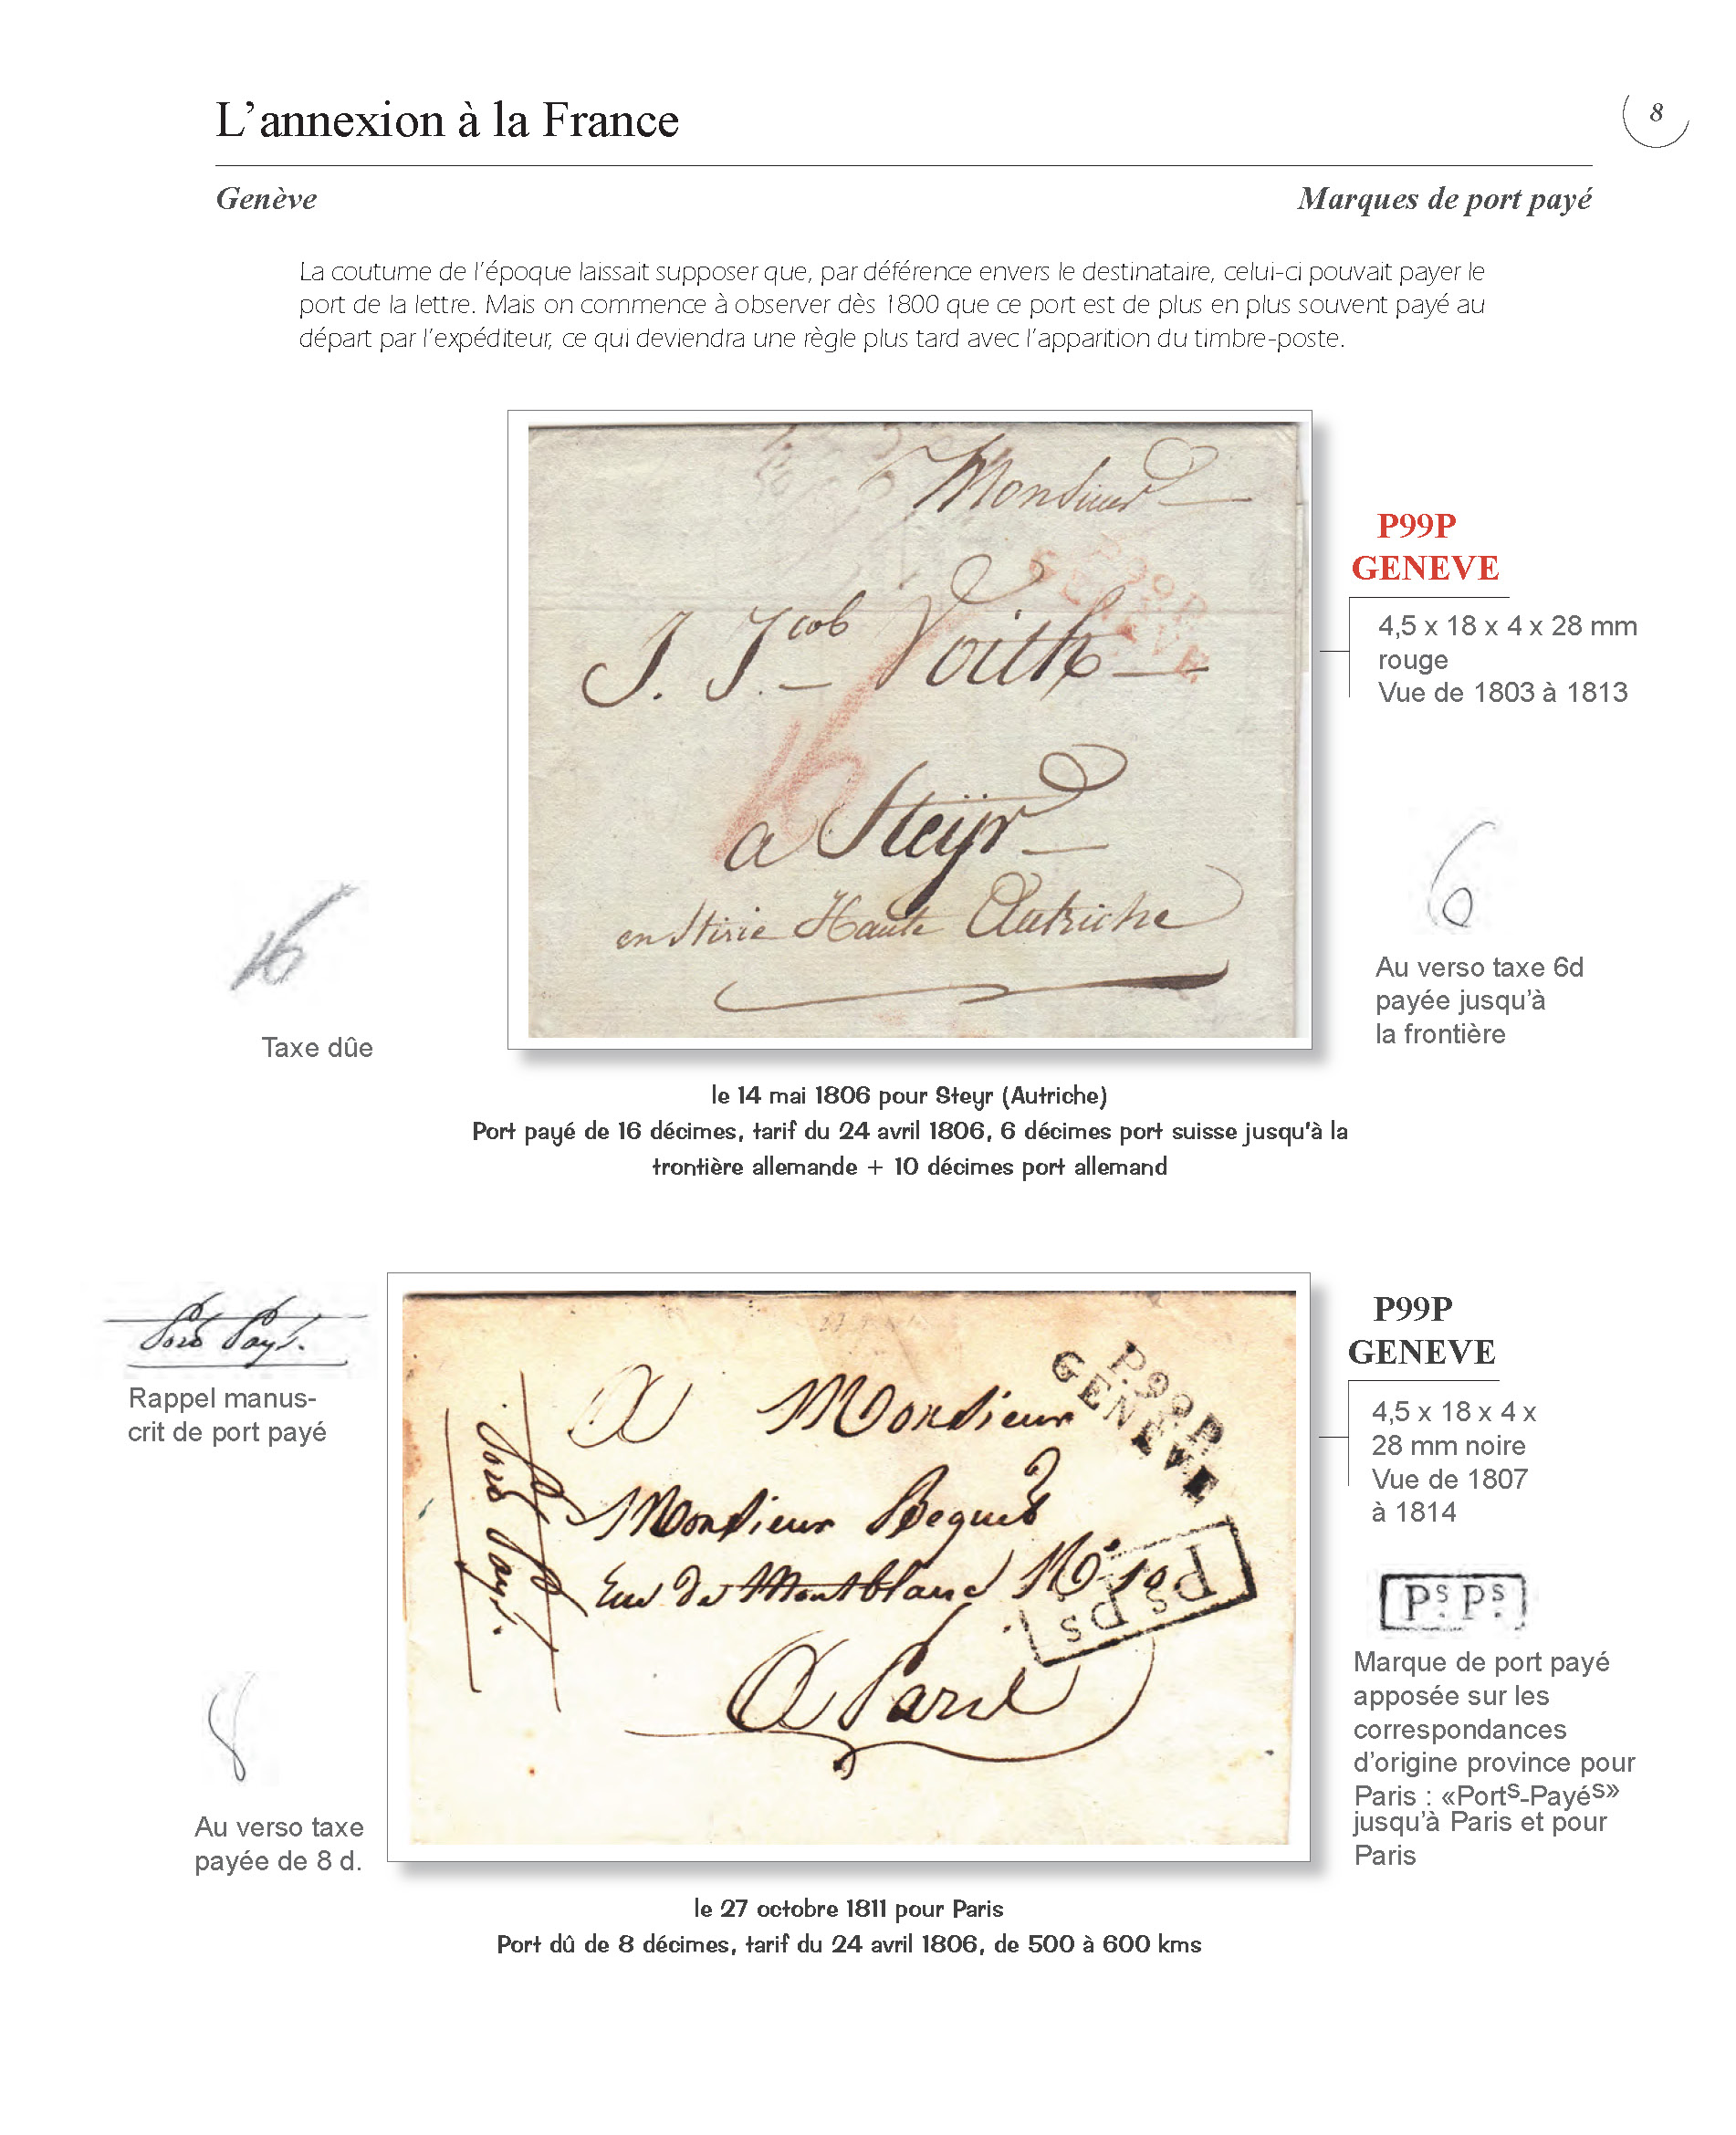 L'annexion à la France
8
Genève
Marques de port payé
La coutume de l'époque laissait supposer que, par déférence envers le destinataire, celui-ci pouvait payer le
port de la lettre. Mais on commence à observer dès 1800 que ce port est de plus en plus souvent payé au
départ par l'expéditeur, ce qui deviendra une règle plus tard avec l'apparition du timbre-poste.
Monsieur
P99P
GENEVE
J. Jcob Voith
16
a Steÿr
en Stirie Haute Autriche
P99P
GENEVE
4,5 x 18 x 4 x 28 mm
rouge
Vue de 1803 à 1813
6
Au verso taxe 6d
payée jusqu'à
la frontière
16
Taxe dûe
le 14 mai 1806 pour Steyr (Autriche)
Port payé de 16 décimes, tarif du 24 avril 1806, 6 décimes port suisse jusqu'à la
trontière allemande + 10 décimes port allemand
Port Payé.
Rappel manus-
crit de port payé
8
Au verso taxe
payée de 8 d.
P.99.P.
GENEVE
A Monsieur
Monsieur Bequet
Rue du Montblanc No. 10
A Paris
Port Payé.
Ps.Ps.
P99P
GENEVE
4,5 x 18 x 4 x
28 mm noire
Vue de 1807
à 1814
Ps.Ps.
Marque de port payé
apposée sur les
correspondances
d'origine province pour
Paris : «Ports-Payés»
jusqu'à Paris et pour
Paris
le 27 octobre 1811 pour Paris
Port dû de 8 décimes, tarif du 24 avril 1806, de 500 à 600 kms